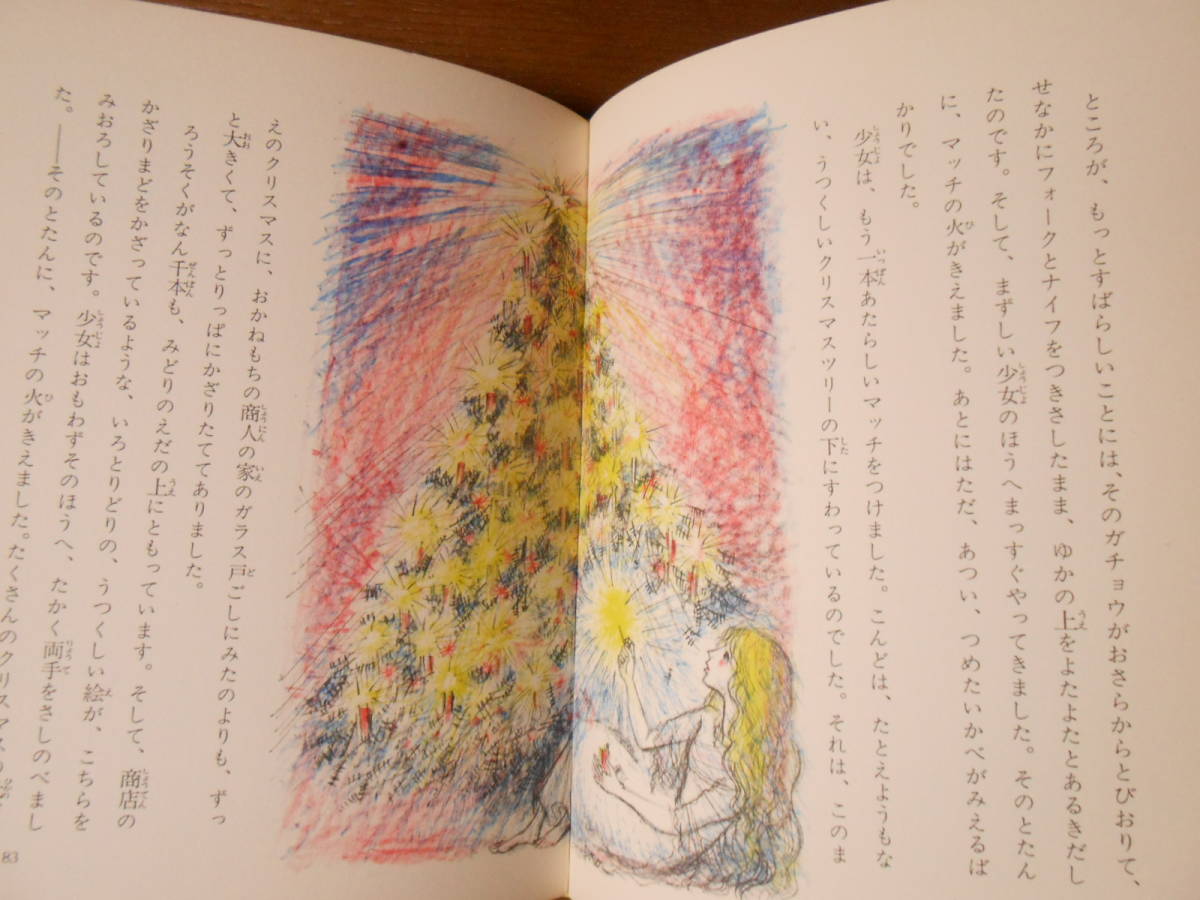 ところが、もっとすばらしいことには、そのガチョウがおさらからとびおりて、
せなかにフォークとナイフをつきさしたまま、ゆかの上をよたよたとあるきだし
たのです。そして、まずしい少女のほうへまっすぐやってきました。そのとたん
に、マッチの火がきえました。あとにはただ、あつい、つめたいかべがみえるば
かりでした。
少女は、もう一本あたらしいマッチをつけました。こんどは、たとえようもな
い、うつくしいクリスマスツリーの下にすわっているのでした。それは、このま
えのクリスマスに、おかねもちの商人の家のガラス戸ごしにみたのよりも、ずっ
と大きくて、ずっとりっぱにかざりたててありました。
ろうそくがなん千本も、みどりのえだの上にともっています。そして、商店の
かざりまどをかざっているような、いろとりどりの、うつくしい絵が、こちらを
みおろしているのです。少女はおもわずそのほうへ、たかく両手をさしのべまし
た。――そのとたんに、マッチの火がきえました。たくさんのクリスマス
83